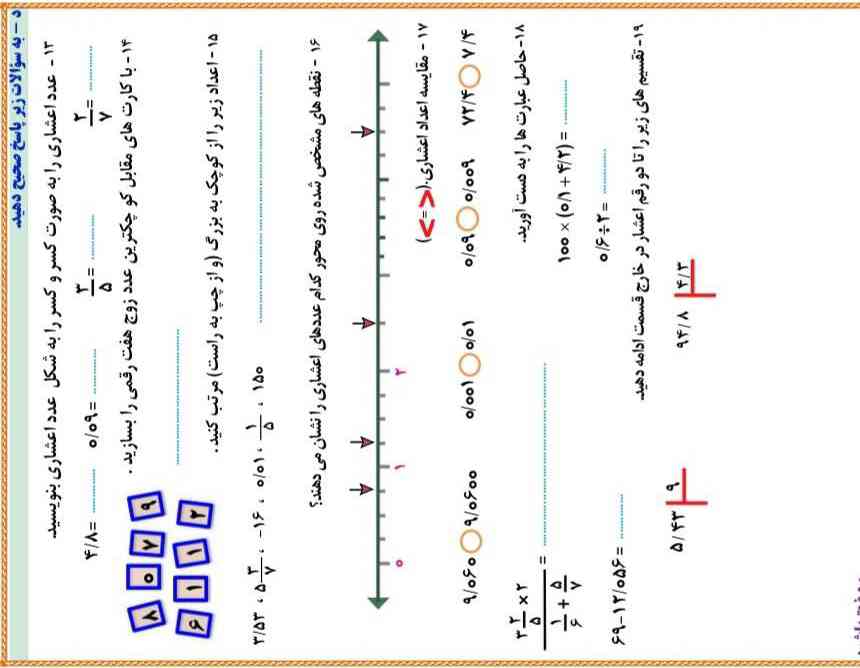 د – به سؤالات زیر پاسخ صحیح دهید.
۱۳ - عدد اعشاری را به صورت کسر و کسر را به شکل عدد اعشاری بنویسید.
۴/۸= ............ ۰/۰۹= ............ ۳/۵ = ............ ۲/۷ = ............
۱۴- با کارت های مقابل کوچکترین عدد زوج هفت رقمی را بسازید .
۸ ۵ ۷ ۹
۶ ۱ ۱ ۲
............
۱۵ - اعداد زیر را از کوچک به بزرگ (و از چپ به راست) مرتب کنید .
۳/۵۳ ، ۵ ۳/۷ ، -۱۶ ، ۰/۰۱ ، ۱/۵ ، ۱۵۰ ............
۱۶ - نقطه های مشخص شده روی محور کدام عددهای اعشاری را نشان می دهند؟
۰ ۱ ۲
۱۷ - مقایسه اعداد اعشاری.(< = >)
۹/۰۶۰ ○ ۹/۰۶۰۰ ۰/۰۰۱ ○ ۰/۰۱ ۰/۰۹ ○ ۰/۰۰۹ ۷۲/۴ ○ ۷/۴
۱۸-حاصل عبارت ها را به دست آورید.
(۳ ۲/۵ × ۲) / (۱/۶ + ۵/۷) = ............ ۱۰۰ × (۰/۱ + ۴/۲) = ............
۶۹-۱۲/۰۵۶= ............ ۰/۶ ÷ ۲= ............
۱۹- تقسیم های زیر را تا دو رقم اعشار در خارج قسمت ادامه دهید.
۵/۴۳ | ۹ ۹۴/۸ | ۴/۳